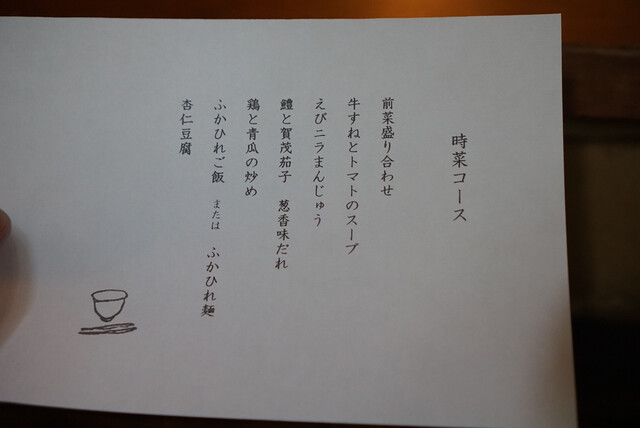 時菜コース
前菜盛り合わせ
牛すねとトマトのスープ
えびニラまんじゅう
鱧と賀茂茄子 葱香味だれ
鶏と青瓜の炒め
ふかひれご飯 または ふかひれ麺
杏仁豆腐